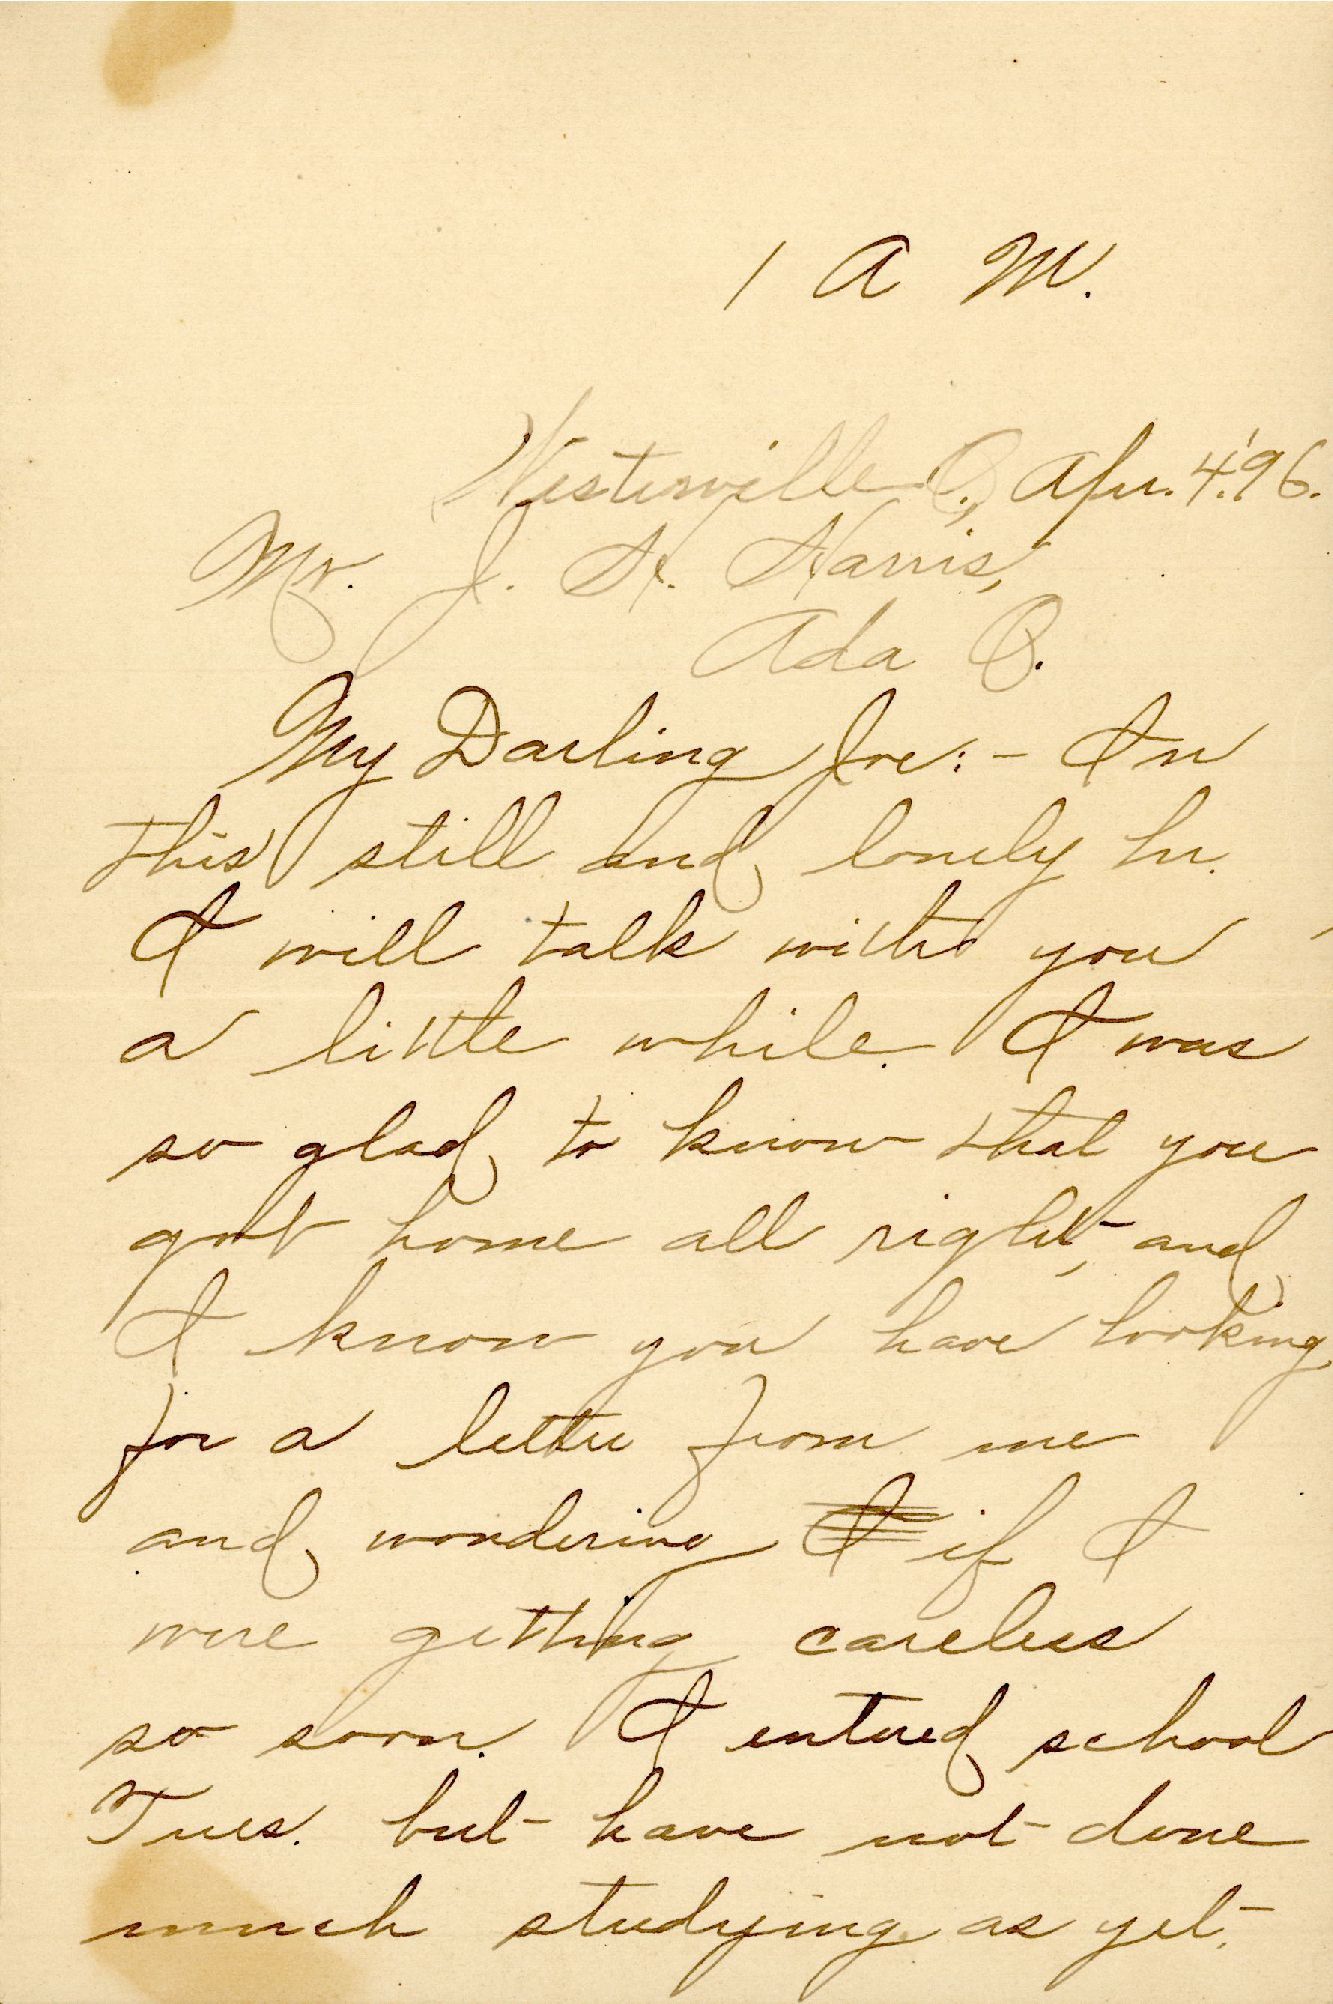 1 A M.
Westerville O., Apr. 4, '96.
Mr. J. H. Harris,
Ada O.
My Darling Joe:- In
this still and lonely hr.
I will talk with you
a little while. I was
so glad to know that you
got home all right, and
I know you have looking
for a letter from me
and wondering I if I
were getting careless
so soon. I entered school
Tues. but have not done
much studying as yet.